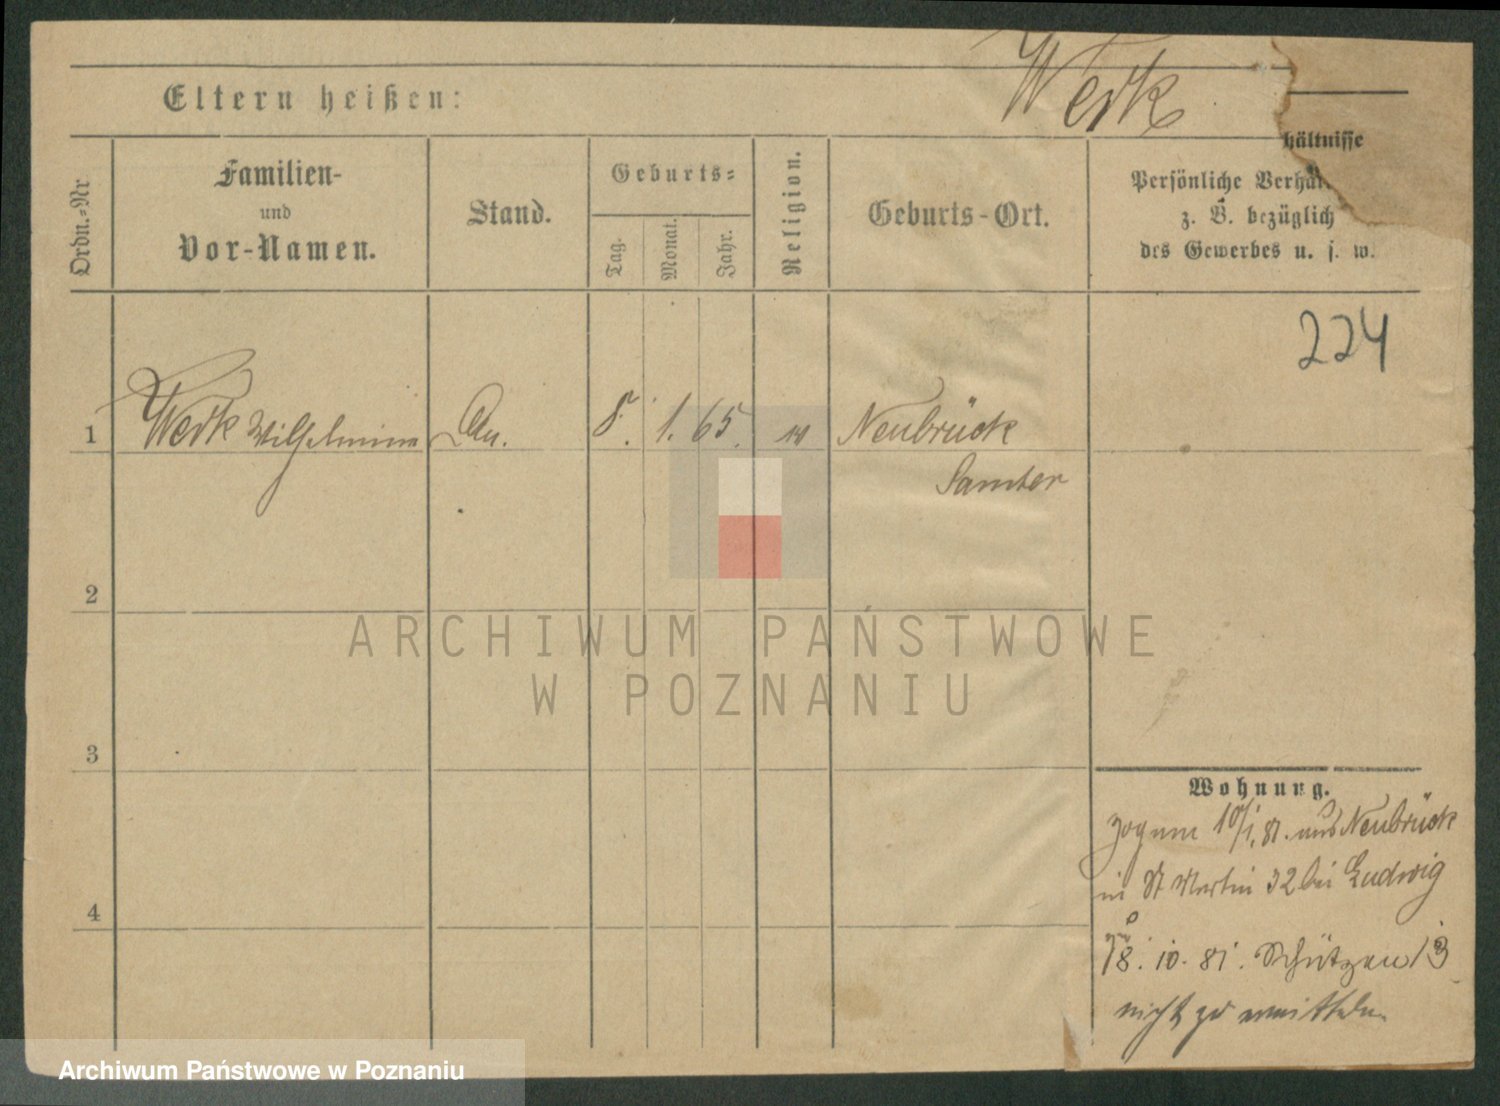 Werk
Eltern heißen:
Ordn.=Nr
Familien-
und
Vor-Namen.
Stand.
Geburts=
Tag.
Monat.
Jahr.
Religion.
Geburts-Ort.
hältnisse
Persönliche Verhäl
z. B. bezüglich
des Gewerbes u. s. w.
224
1 Werk Wilhelmine 8. 1. 65. Neubrück
Samter
2
3
4
ARCHIWUM PAŃSTWOWE
W POZNANIU
Wohnung.
zog am 10/1. 81. aus Neubrück
in St Martin 32 bei Ludwig
18. 10. 81. Schützen 13
nicht zu ermitteln.
Archiwum Państwowe w Poznaniu